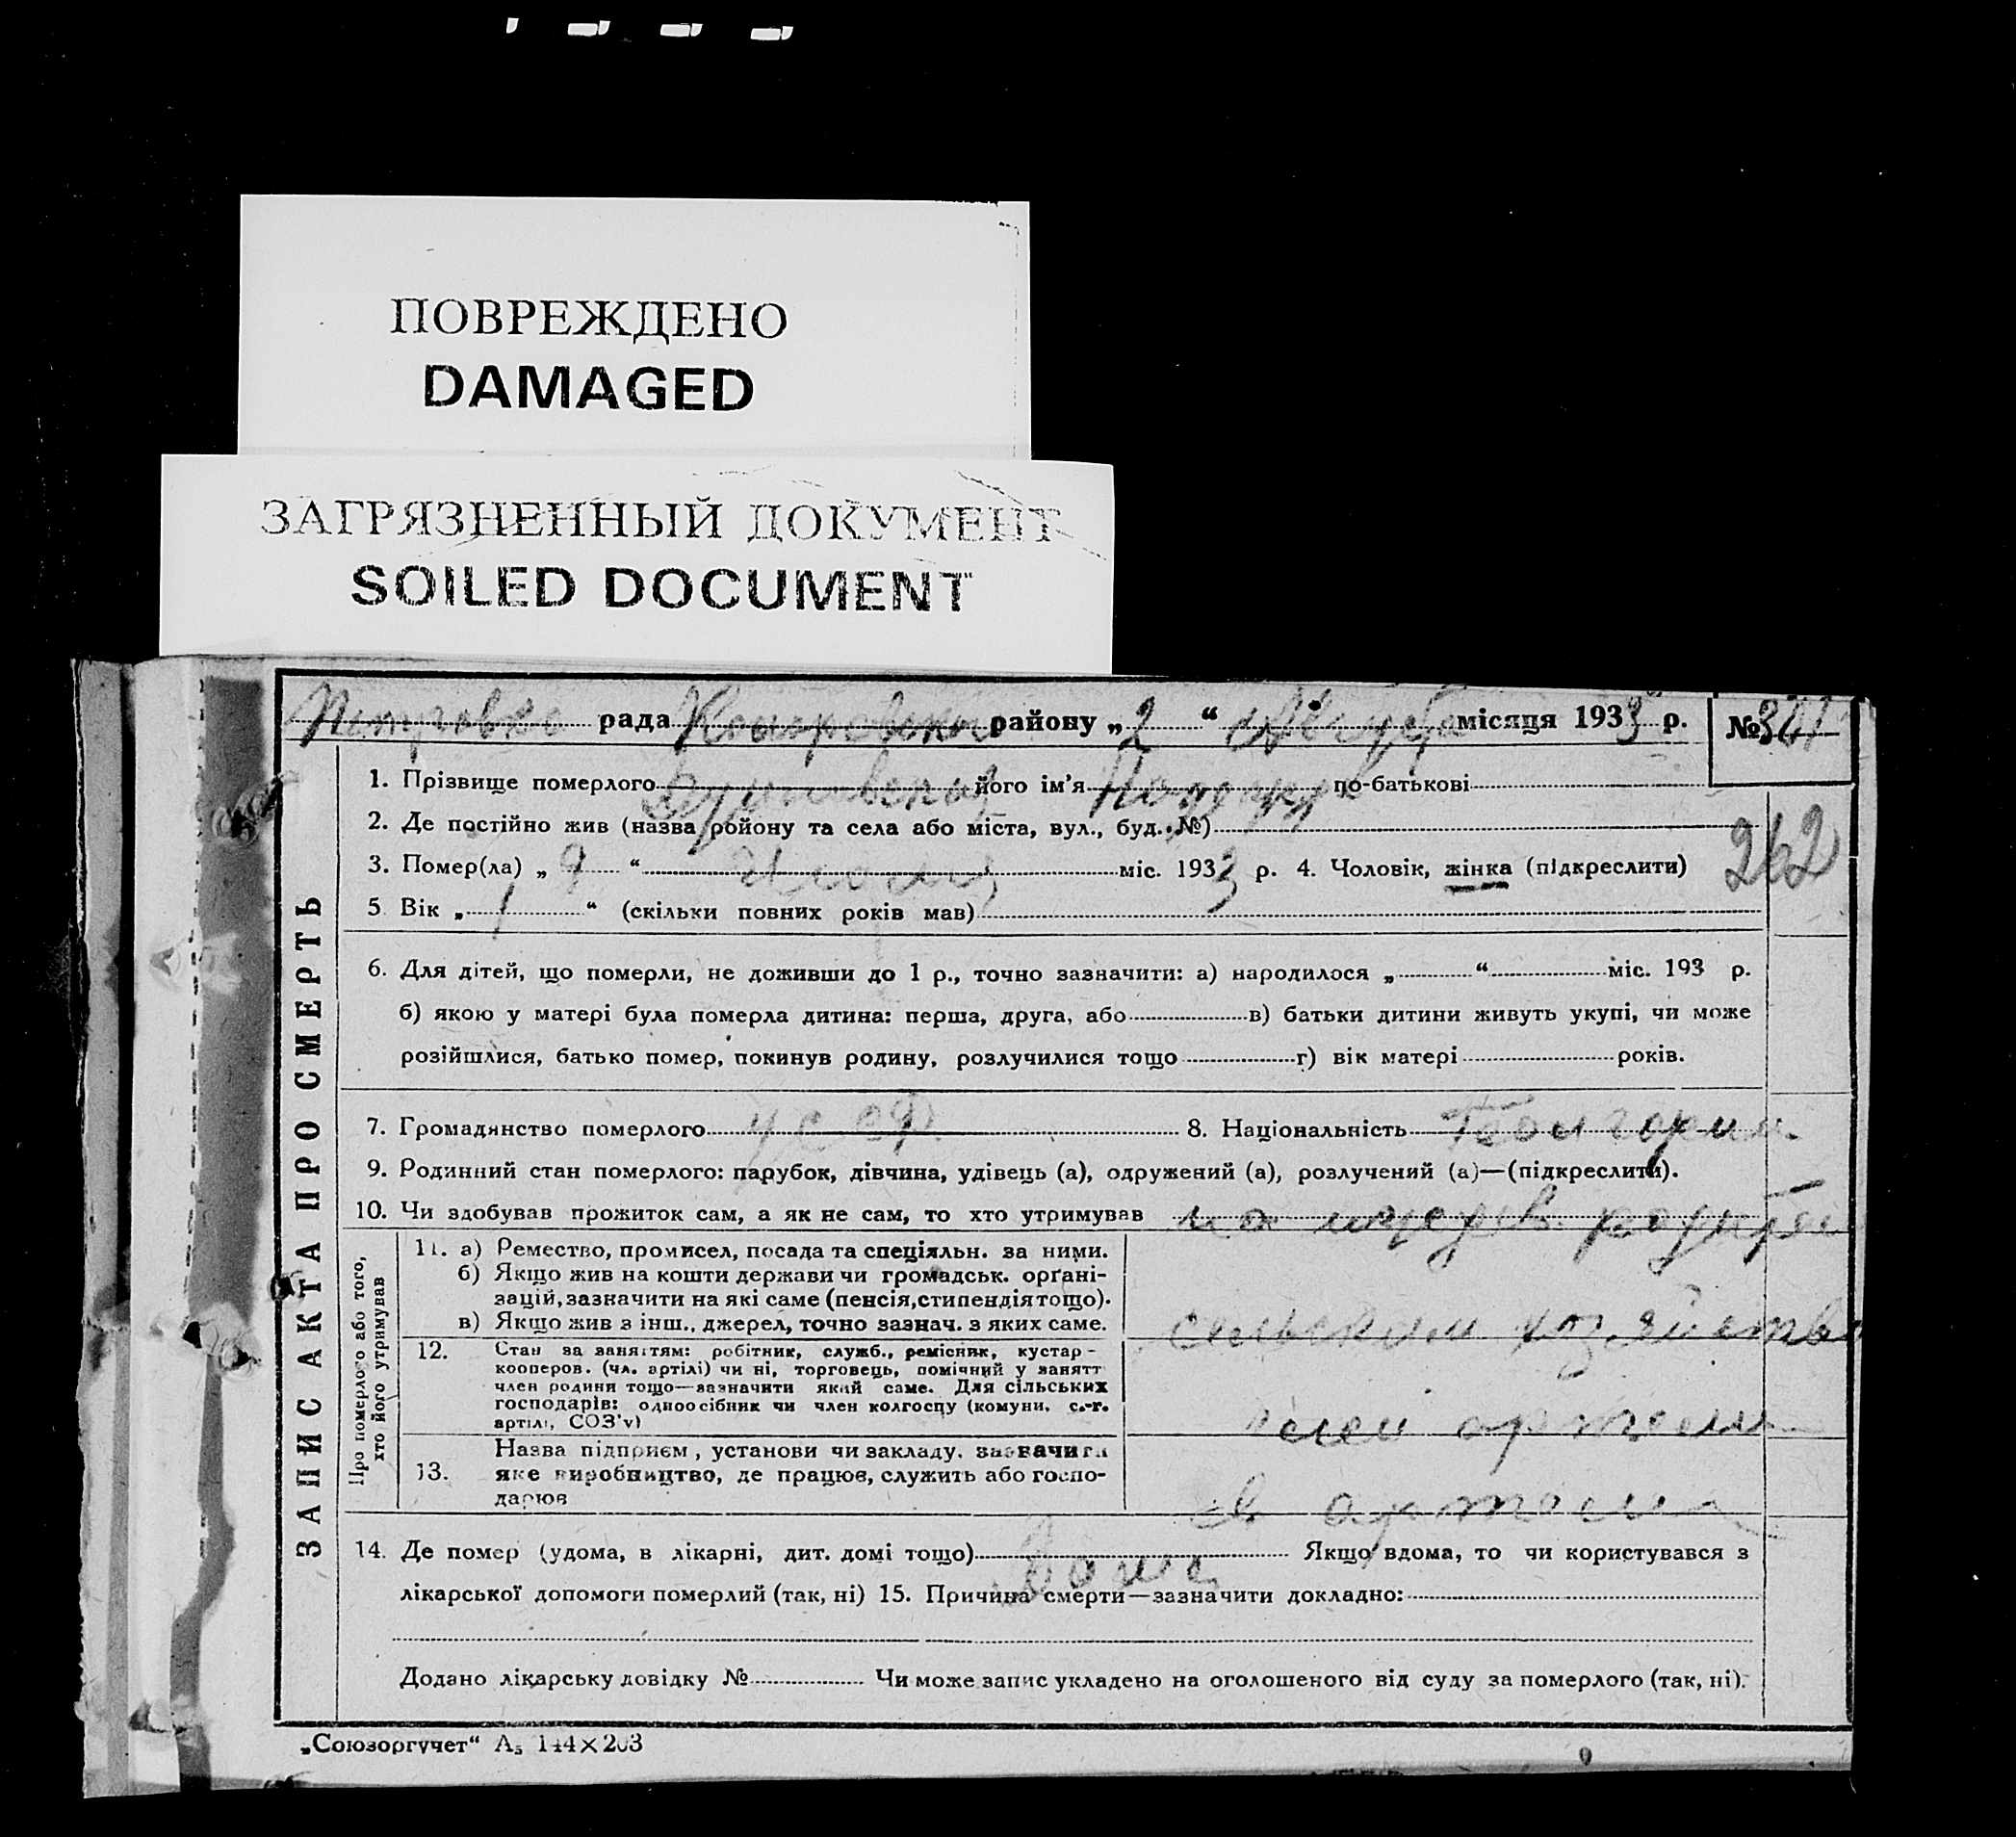 ПОВРЕЖДЕНО
DAMAGED
ЗАГРЯЗНЕННЫЙ ДОКУМЕНТ
SOILED DOCUMENT
рада району „2“ місяця 1933 р. №
1. Прізвище померлого його ім'я по-батькові
2. Де постійно жив (назва ройону та села або міста, вул., буд. №)
262
3. Помер(ла) „9“ міс. 1933 р. 4. Чоловік, жінка (підкреслити)
5 Вік „1“ (скільки повних років мав)
6. Для дітей, що померли, не доживши до 1 р., точно зазначити: а) народилося „ “ міс. 193 р.
б) якою у матері була померла дитина: перша, друга, або в) батьки дитини живуть укупі, чи може
розійшлися, батько помер, покинув родину, розлучилися тощо г) вік матері років.
7. Громадянство померлого 8. Національність
9. Родинний стан померлого: парубок, дівчина, удівець (а), одружений (а), розлучений (а)—(підкреслити).
10. Чи здобував прожиток сам, а як не сам, то хто утримував на
11. а) Ремество, промисел, посада та спеціяльн. за ними.
б) Якщо жив на кошти держави чи громадськ. орґані-
зацій, зазначити на які саме (пенсія, стипендія тощо).
в) Якщо жив з інш., джерел, точно зазнач. з яких саме.
сельском
12. Стан за заняттям: робітник, служб., ремісник, кустар-
кооперов. (чл. артілі) чи ні, торговець, помічний у занятт
член родини тощо—зазначити який саме. Для сільських
господарів: одноосібник чи член колгоспу (комуни, с.-г.
артілі, СОЗ'у)
член артели
13. Назва підприєм, установи чи закладу, зазначити
яке виробництво, де працює, служить або госпо-
дарює
в артели
14. Де помер (удома, в лікарні, дит. домі тощо) дома Якщо вдома, то чи користувався з
лікарської допомоги померлий (так, ні) 15. Причина смерти—зазначити докладно:
Додано лікарську довідку № Чи може запис укладено на оголошеного від суду за померлого (так, ні).
ЗАПИС АКТА ПРО СМЕРТЬ
Про померлого або того,
хто його утримував
„Союзоргучет“ А5 144×203